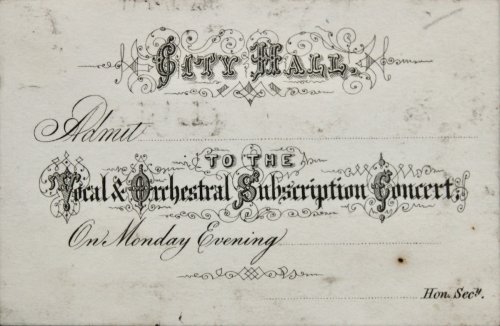 CITY HALL.
Admit
TO THE
Vocal & Orchestral Subscription Concert,
On Monday Evening
Hon. Secy.